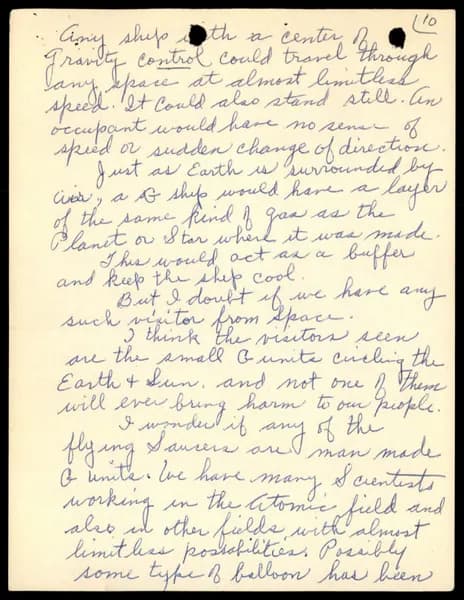 10
Any ship with a center of
Gravity control could travel through
any space at almost limitless
speed. It could also stand still. An
occupant would have no sense of
speed or sudden change of direction.
Just as Earth is surrounded by
air, a G ship would have a layer
of the same kind of gas as the
Planet or Star where it was made.
This would act as a buffer
and keep the ship cool.
But I doubt if we have any
such visitor from Space.
I think the visitors seen
are the small G units circling the
Earth & Sun. and not one of them
will ever bring harm to our people.
I wonder if any of the
flying Saucers are man made
G units. We have many Scientests
working in the Atomic field and
also in other fields with almost
limitless possabilities. Possibly
some type of balloon has been